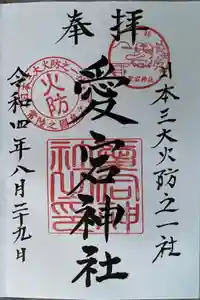 奉拝
日本三大火防之一社
愛宕神社
令和四年八月二十九日
火防